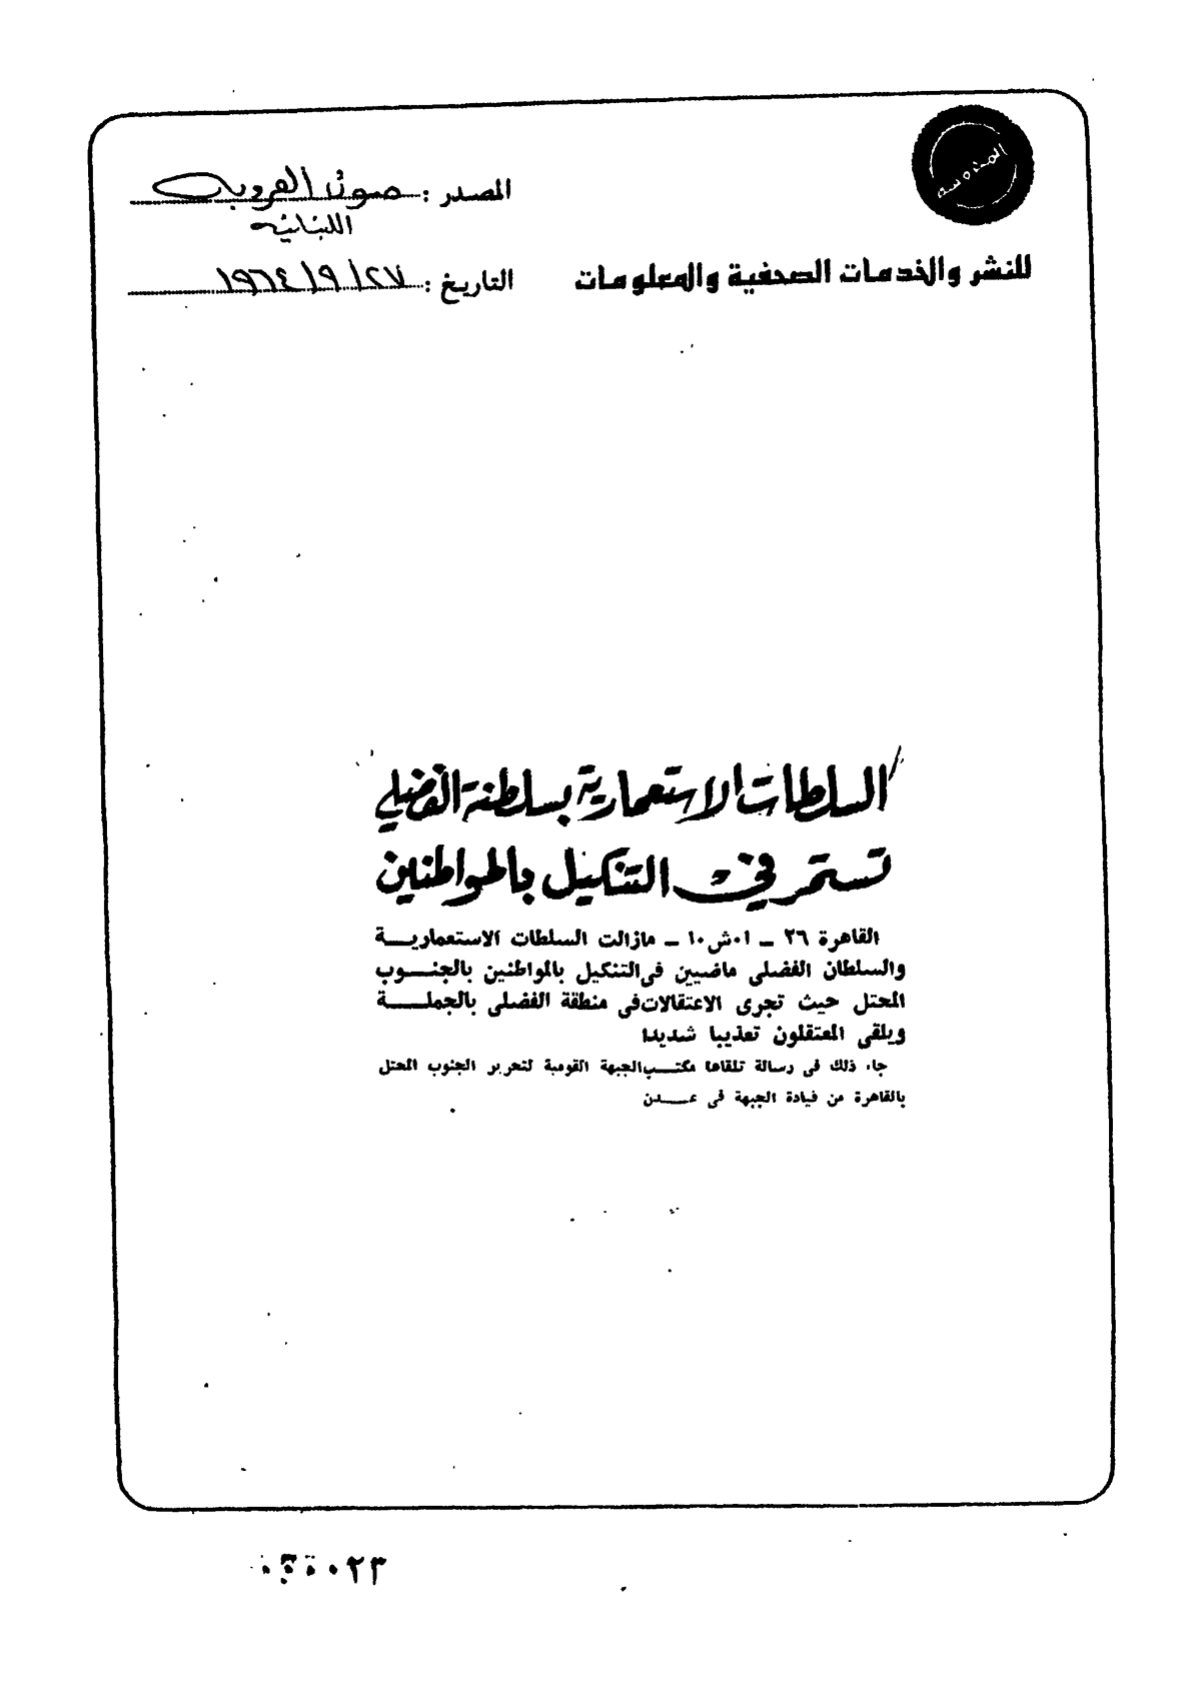 المدوسه
المصدر : صوت العروبه
اللبنانيه
للنشر والخدمات الصحفية والمعلومات
التاريخ : ٢٧/٩/١٩٦٤
السلطات الاستعمارية بسلطنة الفضلي
تستمر في التنكيل بالمواطنين
القاهرة ٢٦ – ا٠ش٠ا – مازالت السلطات الاستعماريـــة
والسلطان الفضلى ماضيين فى التنكيل بالمواطنين بالجنـــوب
المحتل حيث تجرى الاعتقالات فى منطقة الفضلى بالجملـــة
ويلقى المعتقلون تعذيبا شديدا
جاء ذلك فى رسالة تلقاها مكتـــب الجبهة القومية لتحرير الجنوب المحتل
بالقاهرة من قيادة الجبهة فى عـــدن